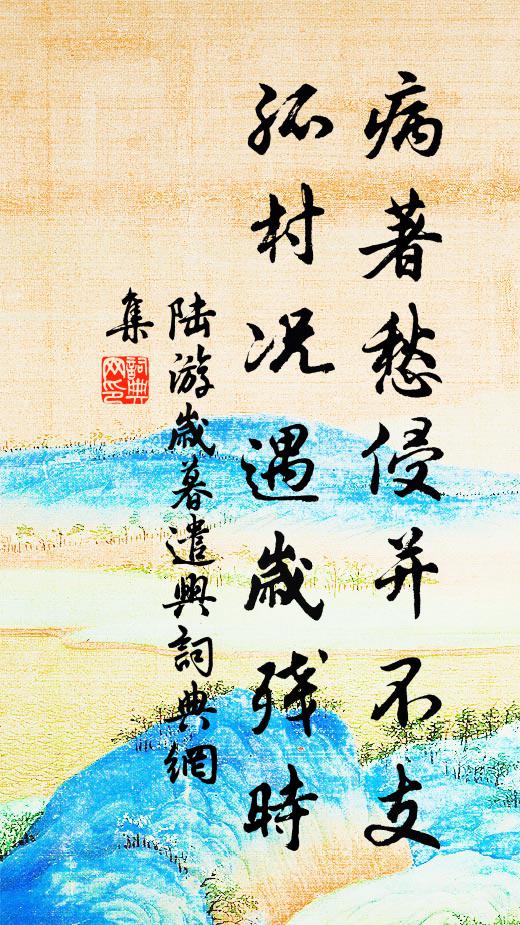 病著愁侵并不支
孤村况遇歲残時
陆游歲暮遣興詞典網
集
詞典
网印